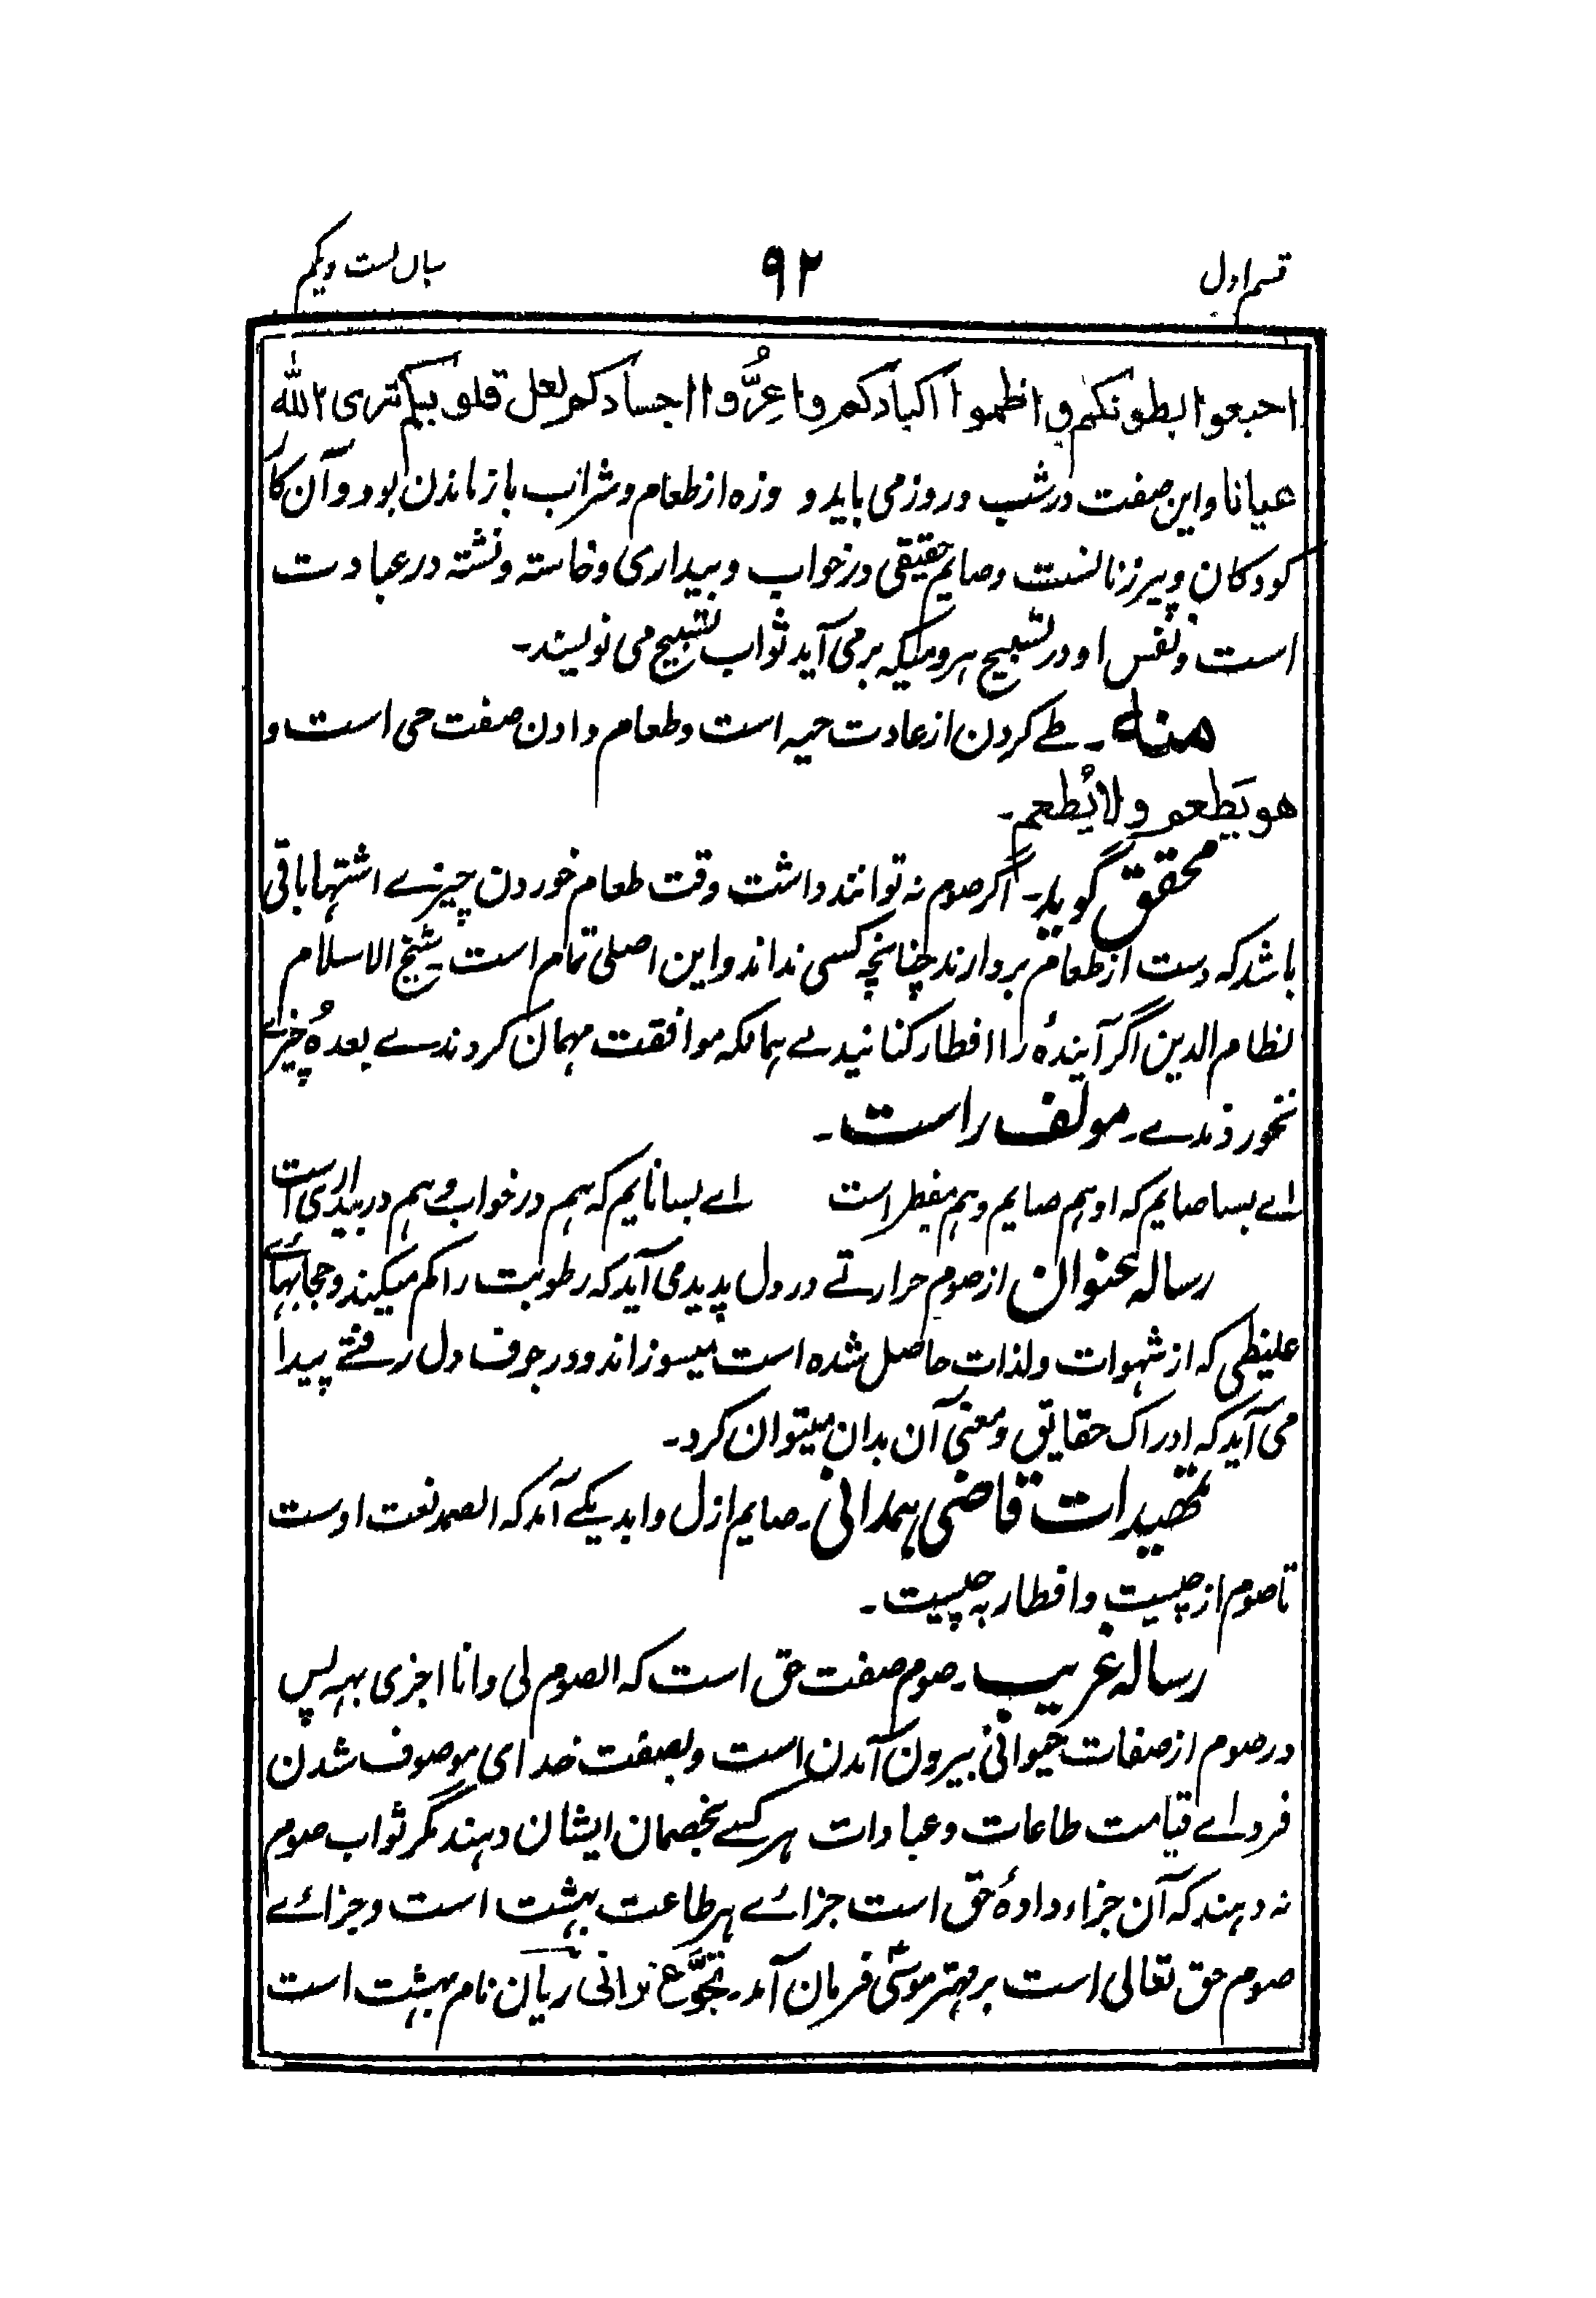 قسم اول
۹۲
بیان بست ویکم
اجیعوا بطونکم و اظمؤا اکبادکم واعرُّوا اجسادکم لعل قلوبکم تری الله
عیانا واین صفت در شب و روز می باید و وزه از طعام و شراب باز ماندن بود و آن کار
کودکان و پیر زنانست و صایم حقیقی در خواب و بیداری و خاسته و نشته در عبادت
است و نفس او در تسبیح هر دمیکه بر می آید ثواب تسبیح می نویسند۔
منه ۔ طے کردن از عادت حیه است و طعام دادن صفت حی است و
هو یَطعم و لا یُطعم۔
محقق گوید۔ اگر صوم نه توانند داشت وقت طعام خوردن چیزے اشتها باقی
باشد که دست از طعام بردارند چنانچه کسی نداند و این اصلی تمام است۔ شیخ الاسلام
نظام الدین اگر آیندهٔ را افطار کنانیدے همانکه موافقت مهمان کردندے بعدهُ چیزے
نخوردندے۔ مولف راست۔
اے بسا صایم که او هم صایم و هم مفطر است اے بسا نایم که هم در خواب و هم در بیداری است
رساله عنوان از صوم حرارتے در دل پدید می آید که رطوبت را کم میکند و حجابهائے
غلیظی که از شهوات و لذات حاصل شده است میسوزاند و در جوف دل رفتے پیدا
می آید که ادراک حقایق و معنی آن بدان میتوان کرد۔
تمهیدات قاضی همدانی۔ صایم ازل و ابد یکے آمد که الصمد نعت اوست
تا صوم از چیست و افطار به چیست۔
رساله غریب۔ صوم صفت حق است که الصوم لی و انا اجزی بهه پس
در صوم از صفات حیوانی بیرون آمدن است و بصفت خدای موصوف شدن
فرداے قیامت طاعات و عبادات هر کسے بخصمان ایشان دهند مگر ثواب صوم
نه دهند که آن جزاء دادهٔ حق است جزائے هر طاعت بهشت است و جزائے
صوم حق تعالی است بر مهتر موسیٰ فرمان آمد۔ تجوَّع ترانی ریان نام بهشت است